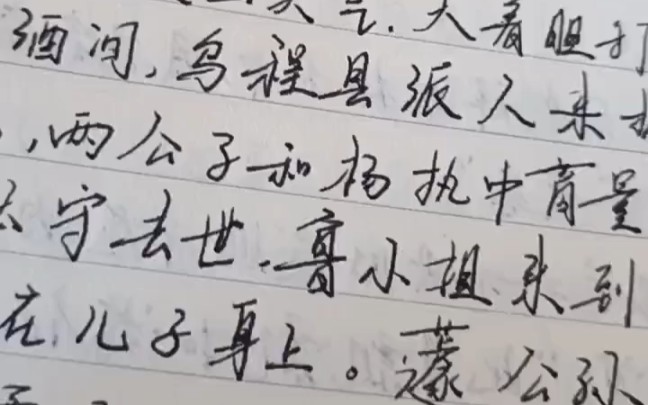 大着胆打
酒间,乌程县派人来
,两公子和杨执中商量
守去世.鲁小姐来到
在儿子身上。蘧公孙